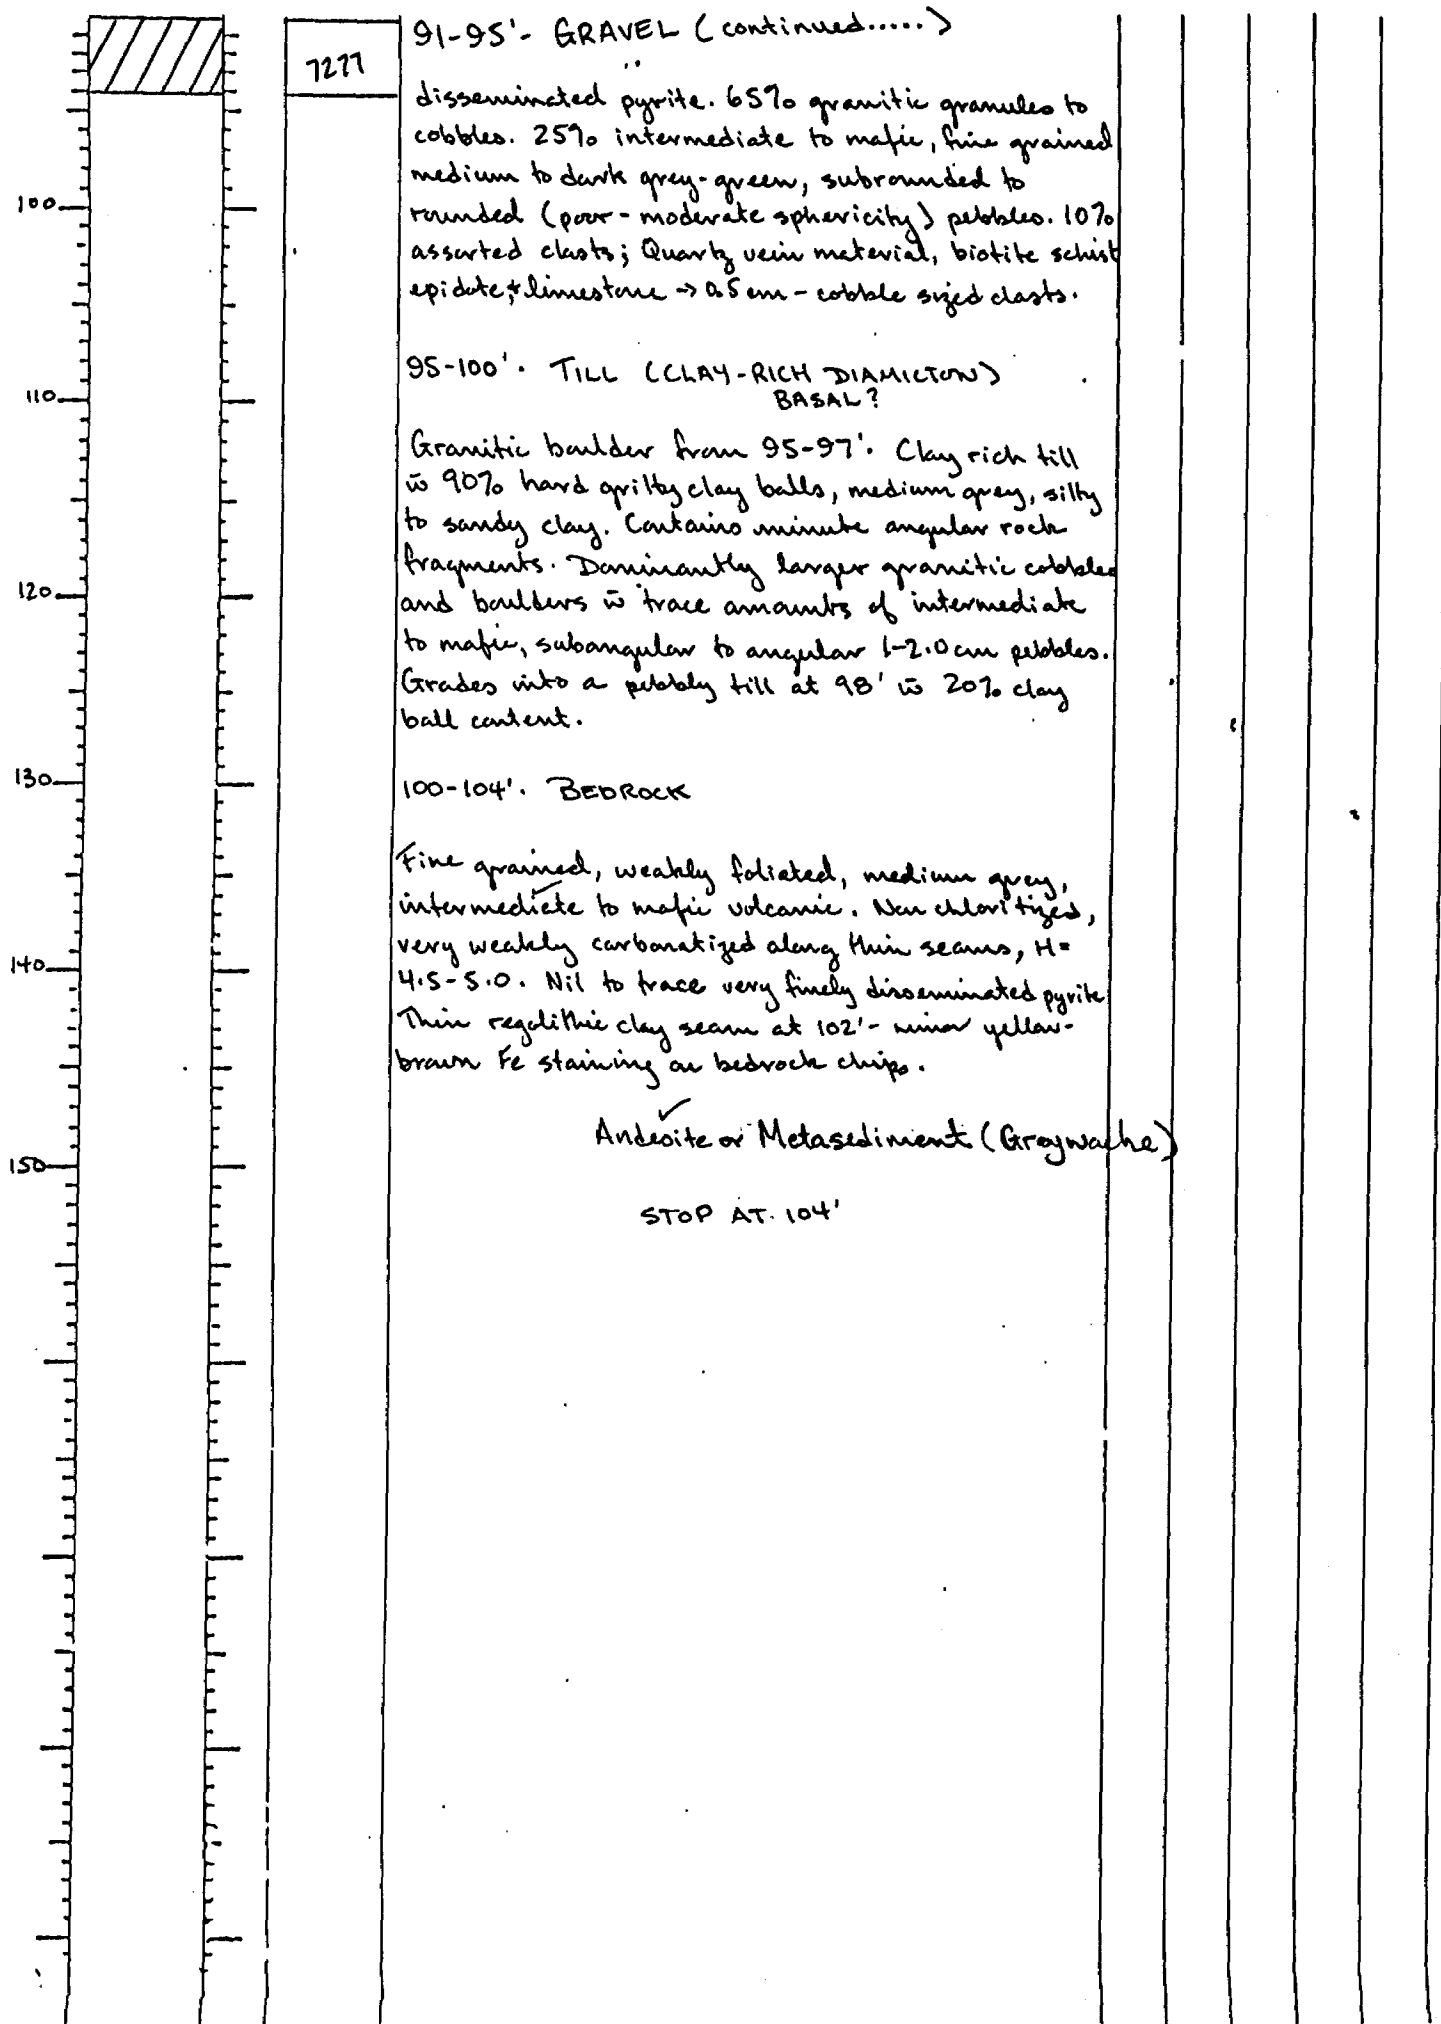 91-95'- GRAVEL (continued.....)
7277
disseminated pyrite. 65% granitic granules to
cobbles. 25% intermediate to mafic, fine grained
medium to dark grey-green, subrounded to
100
rounded (poor-moderate sphericity) pebbles. 10%
assorted clasts; Quartz vein material, biotite schist
epidote, + limestone -> 0.5 cm - cobble sized clasts.
95-100'. TILL (CLAY-RICH DIAMICTON)
110
BASAL?
Granitic boulder from 95-97'. Clay rich till
w̄ 90% hard gritty clay balls, medium grey, silty
to sandy clay. Contains minute angular rock
fragments. Dominantly larger granitic cobbles
120
and boulders w̄ trace amounts of intermediate
to mafic, subangular to angular 1-2.0 cm pebbles.
Grades into a pebbly till at 98' w̄ 20% clay
ball content.
130
100-104'. BEDROCK
Fine grained, weakly foliated, medium grey,
intermediate to mafic volcanic. Non chloritized,
very weakly carbonatized along thin seams, H=
140
4.5-5.0. Nil to trace very finely disseminated pyrite
Thin regolithic clay seam at 102' - minor yellow-
brown Fe staining on bedrock chips.
✓
Andesite or Metasediment (Greywacke)
150
STOP AT. 104'